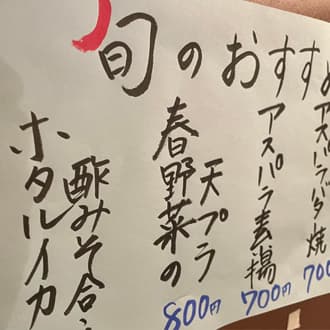 旬のおすすめ
アスパラバター焼
700
アスパラ素揚
700円
春野菜の
天プラ
800円
ホタルイカ
酢みそ合